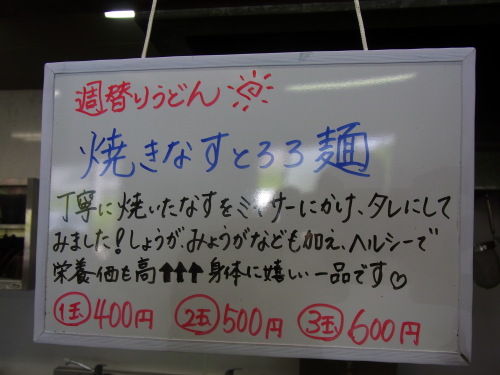 週替りうどん
焼きなすとろろ麺
丁寧に焼いたなすをミキサーにかけ、タレにして
みました!しょうが、みょうがなども加え、ヘルシーで
栄養価も高↑↑↑身体に嬉しい一品です♡
1玉 400円 2玉 500円 3玉 600円